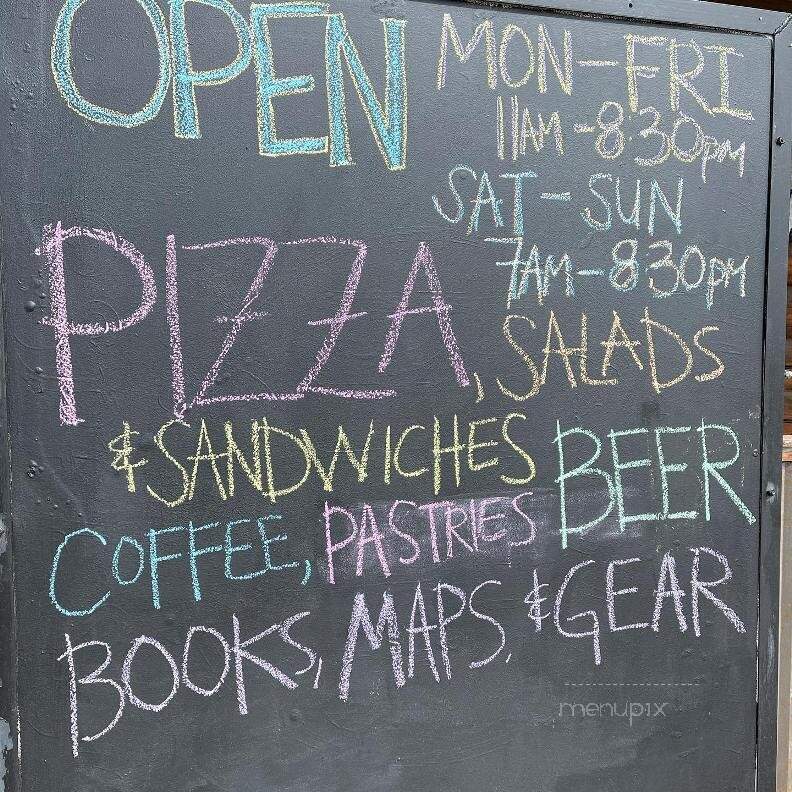 OPEN
MON-FRI
11AM-8:30pm
SAT-SUN
7AM-8:30pm
PIZZA, SALADS
& SANDWICHES BEER
COFFEE, PASTRIES
BOOKS, MAPS, & GEAR
menupix